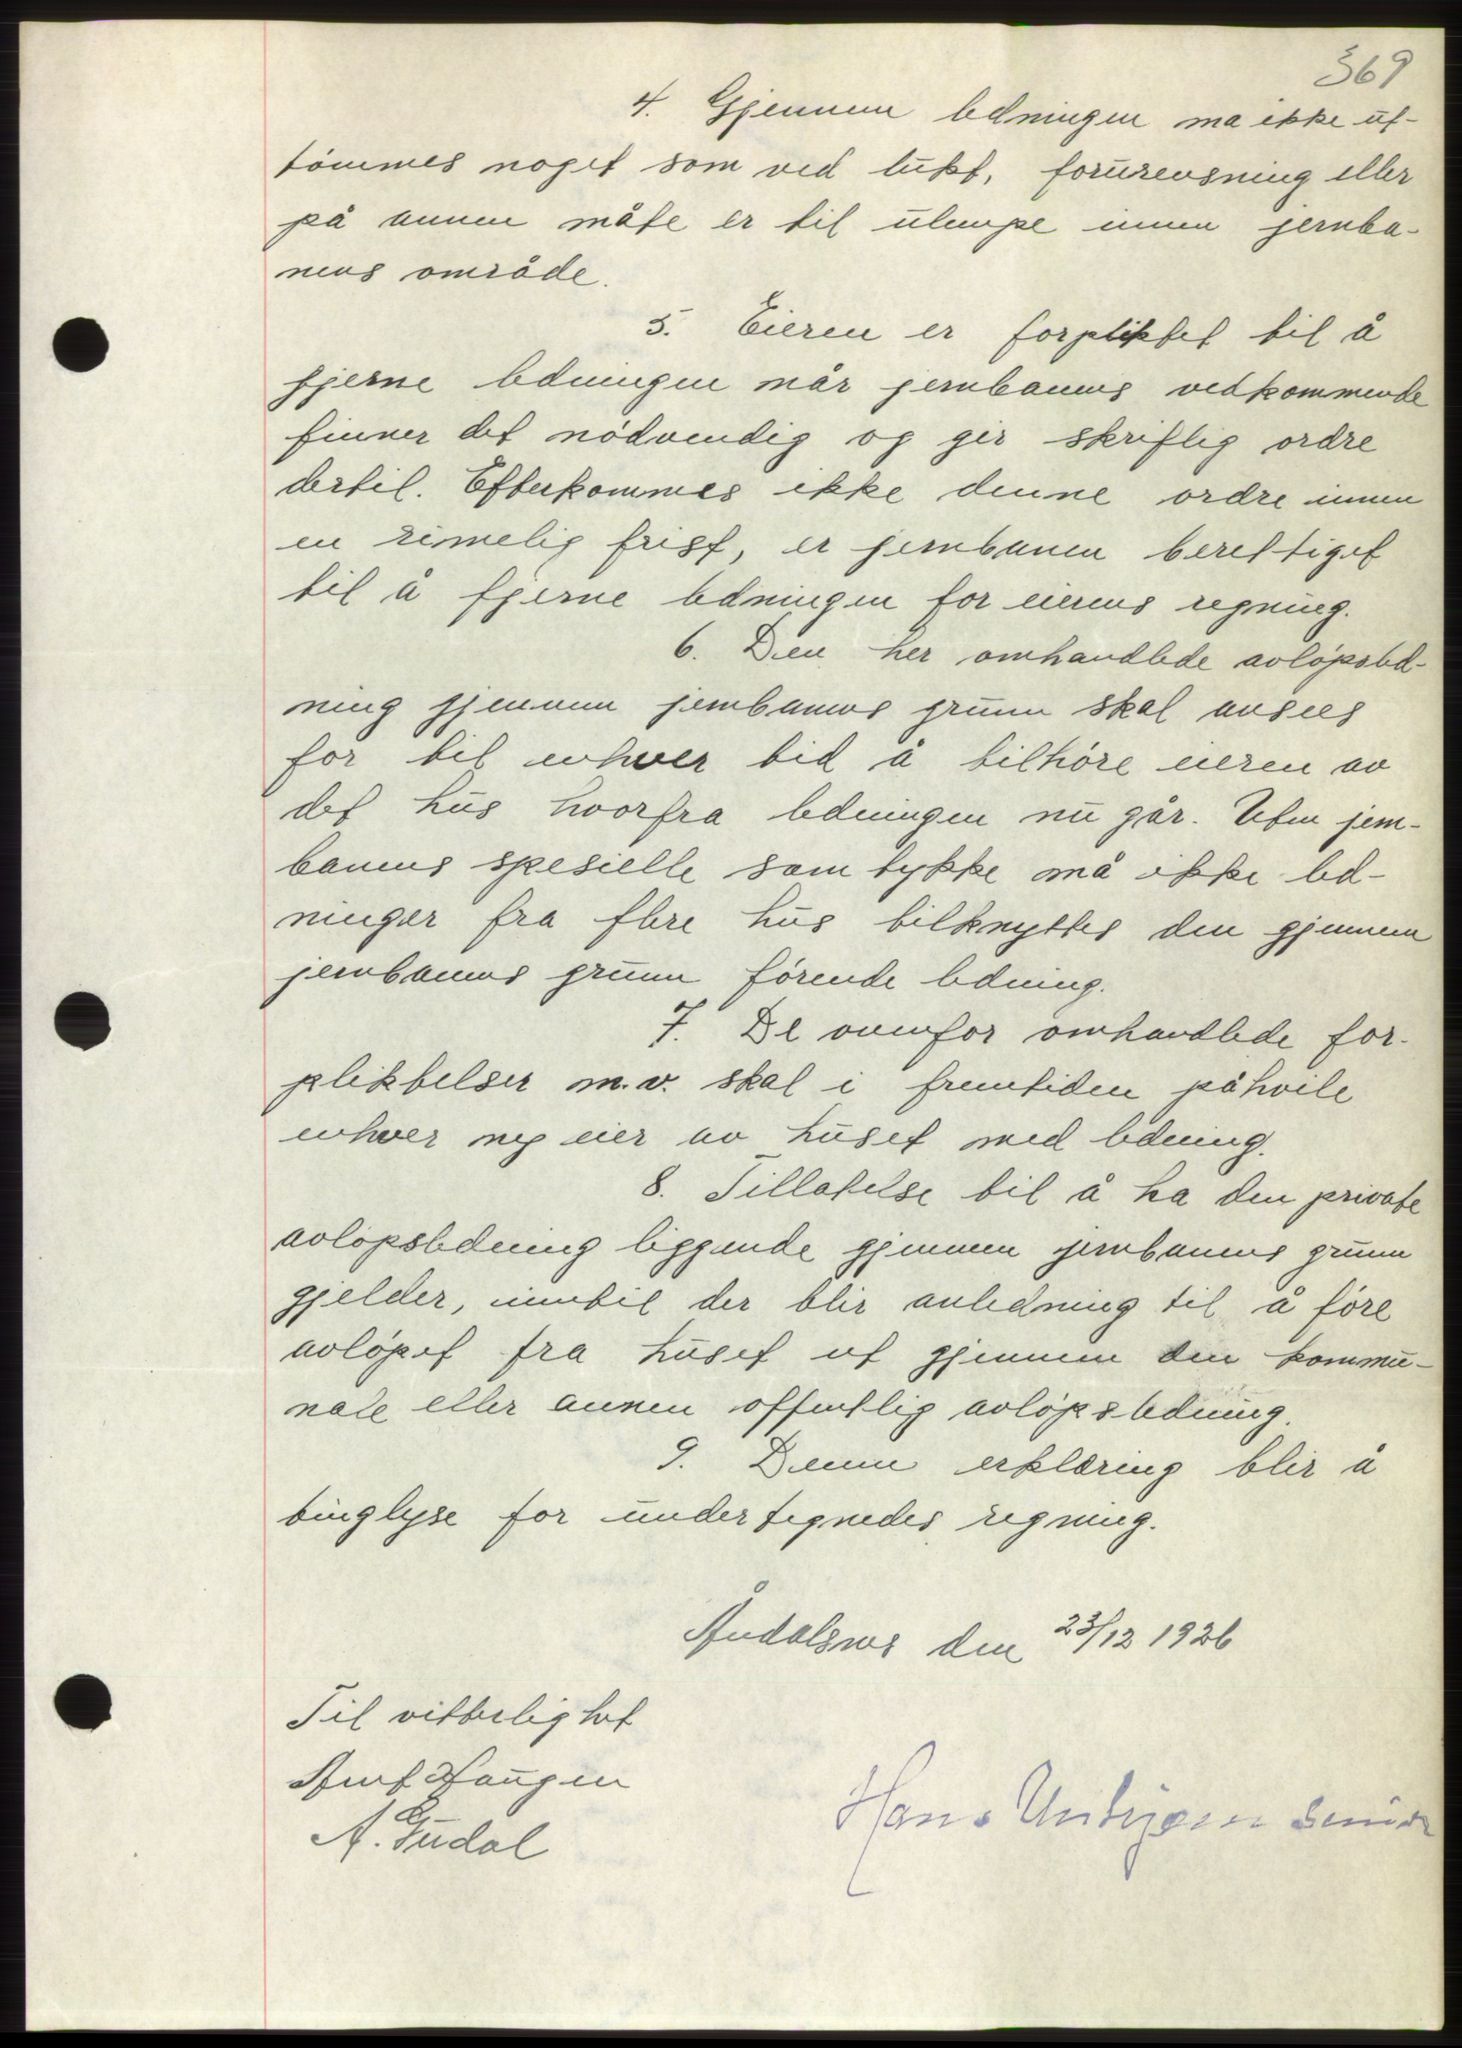 369
4. Gjennem ledningen må ikke ut-
tömmes noget som ved lukt, forurensning eller
på annen måte er til ulempe innen jernba-
nens område.
5. Eieren er forpliktet til å
fjerne ledningen når jernbanens vedkommende
finner det nödvendig og gir skriftlig ordre
dertil. Efterkommes ikke denne ordre innen
en rimelig frist, er jernbanen berettiget
til å fjerne ledningen for eierens regning.
6. Den her omhandlede avlöpsled-
ning gjennem jernbanens grunn skal ansees
for til enhver tid å tilhöre eieren av
det hus hvorfra ledningen nu går. Uten jern-
banens spesielle samtykke må ikke led-
ninger fra flere hus tilknyttes den gjennem
jernbanens grunn förende ledning.
7. De ovenfor omhandlede for-
pliktelser m.v. skal i fremtiden påhvile
enhver ny eier av huset med ledning.
8. Tillatelse til å ha den private
avlöpsledning liggende gjennem jernbanens grunn
gjelder, inntil der blir anledning til å före
avlöpet fra huset ut gjennem den kommu-
nale eller annen offentlig avlöpsledning.
9. Denne erklæring blir å
tinglyse for undertegnedes regning.
Åndalsnes den 23/12 1926
Til vitterlighet
Arnt Haugen
A. Gudal
Hans Unhjem senior